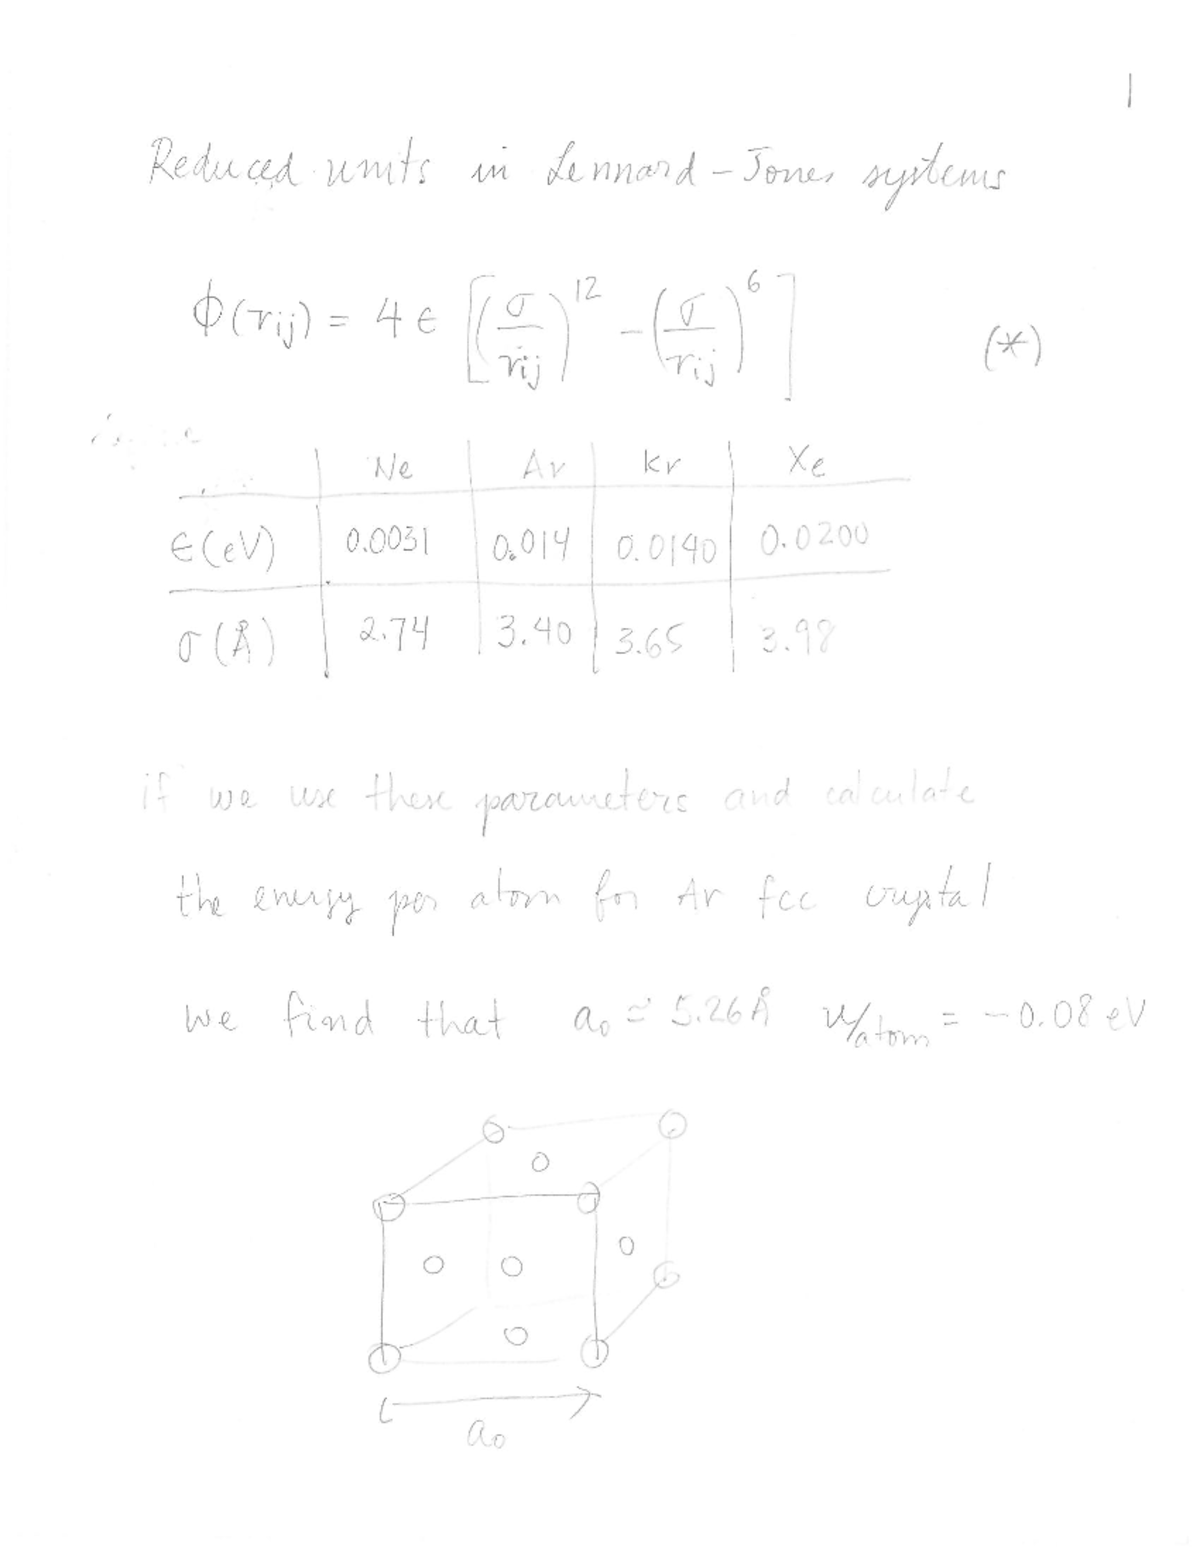 1
Reduced units in Lennard-Jones systems
ϕ(rij) = 4 ϵ [(σ/rij)^12 - (σ/rij)^6] (*)
Ne Ar Kr Xe
ϵ(eV) 0.0031 0.014 0.0140 0.0200
σ(Å) 2.74 3.40 3.65 3.98
if we use these parameters and calculate
the energy per atom for Ar fcc crystal
we find that a₀ ≃ 5.26Å u/atom = -0.08 eV
a₀